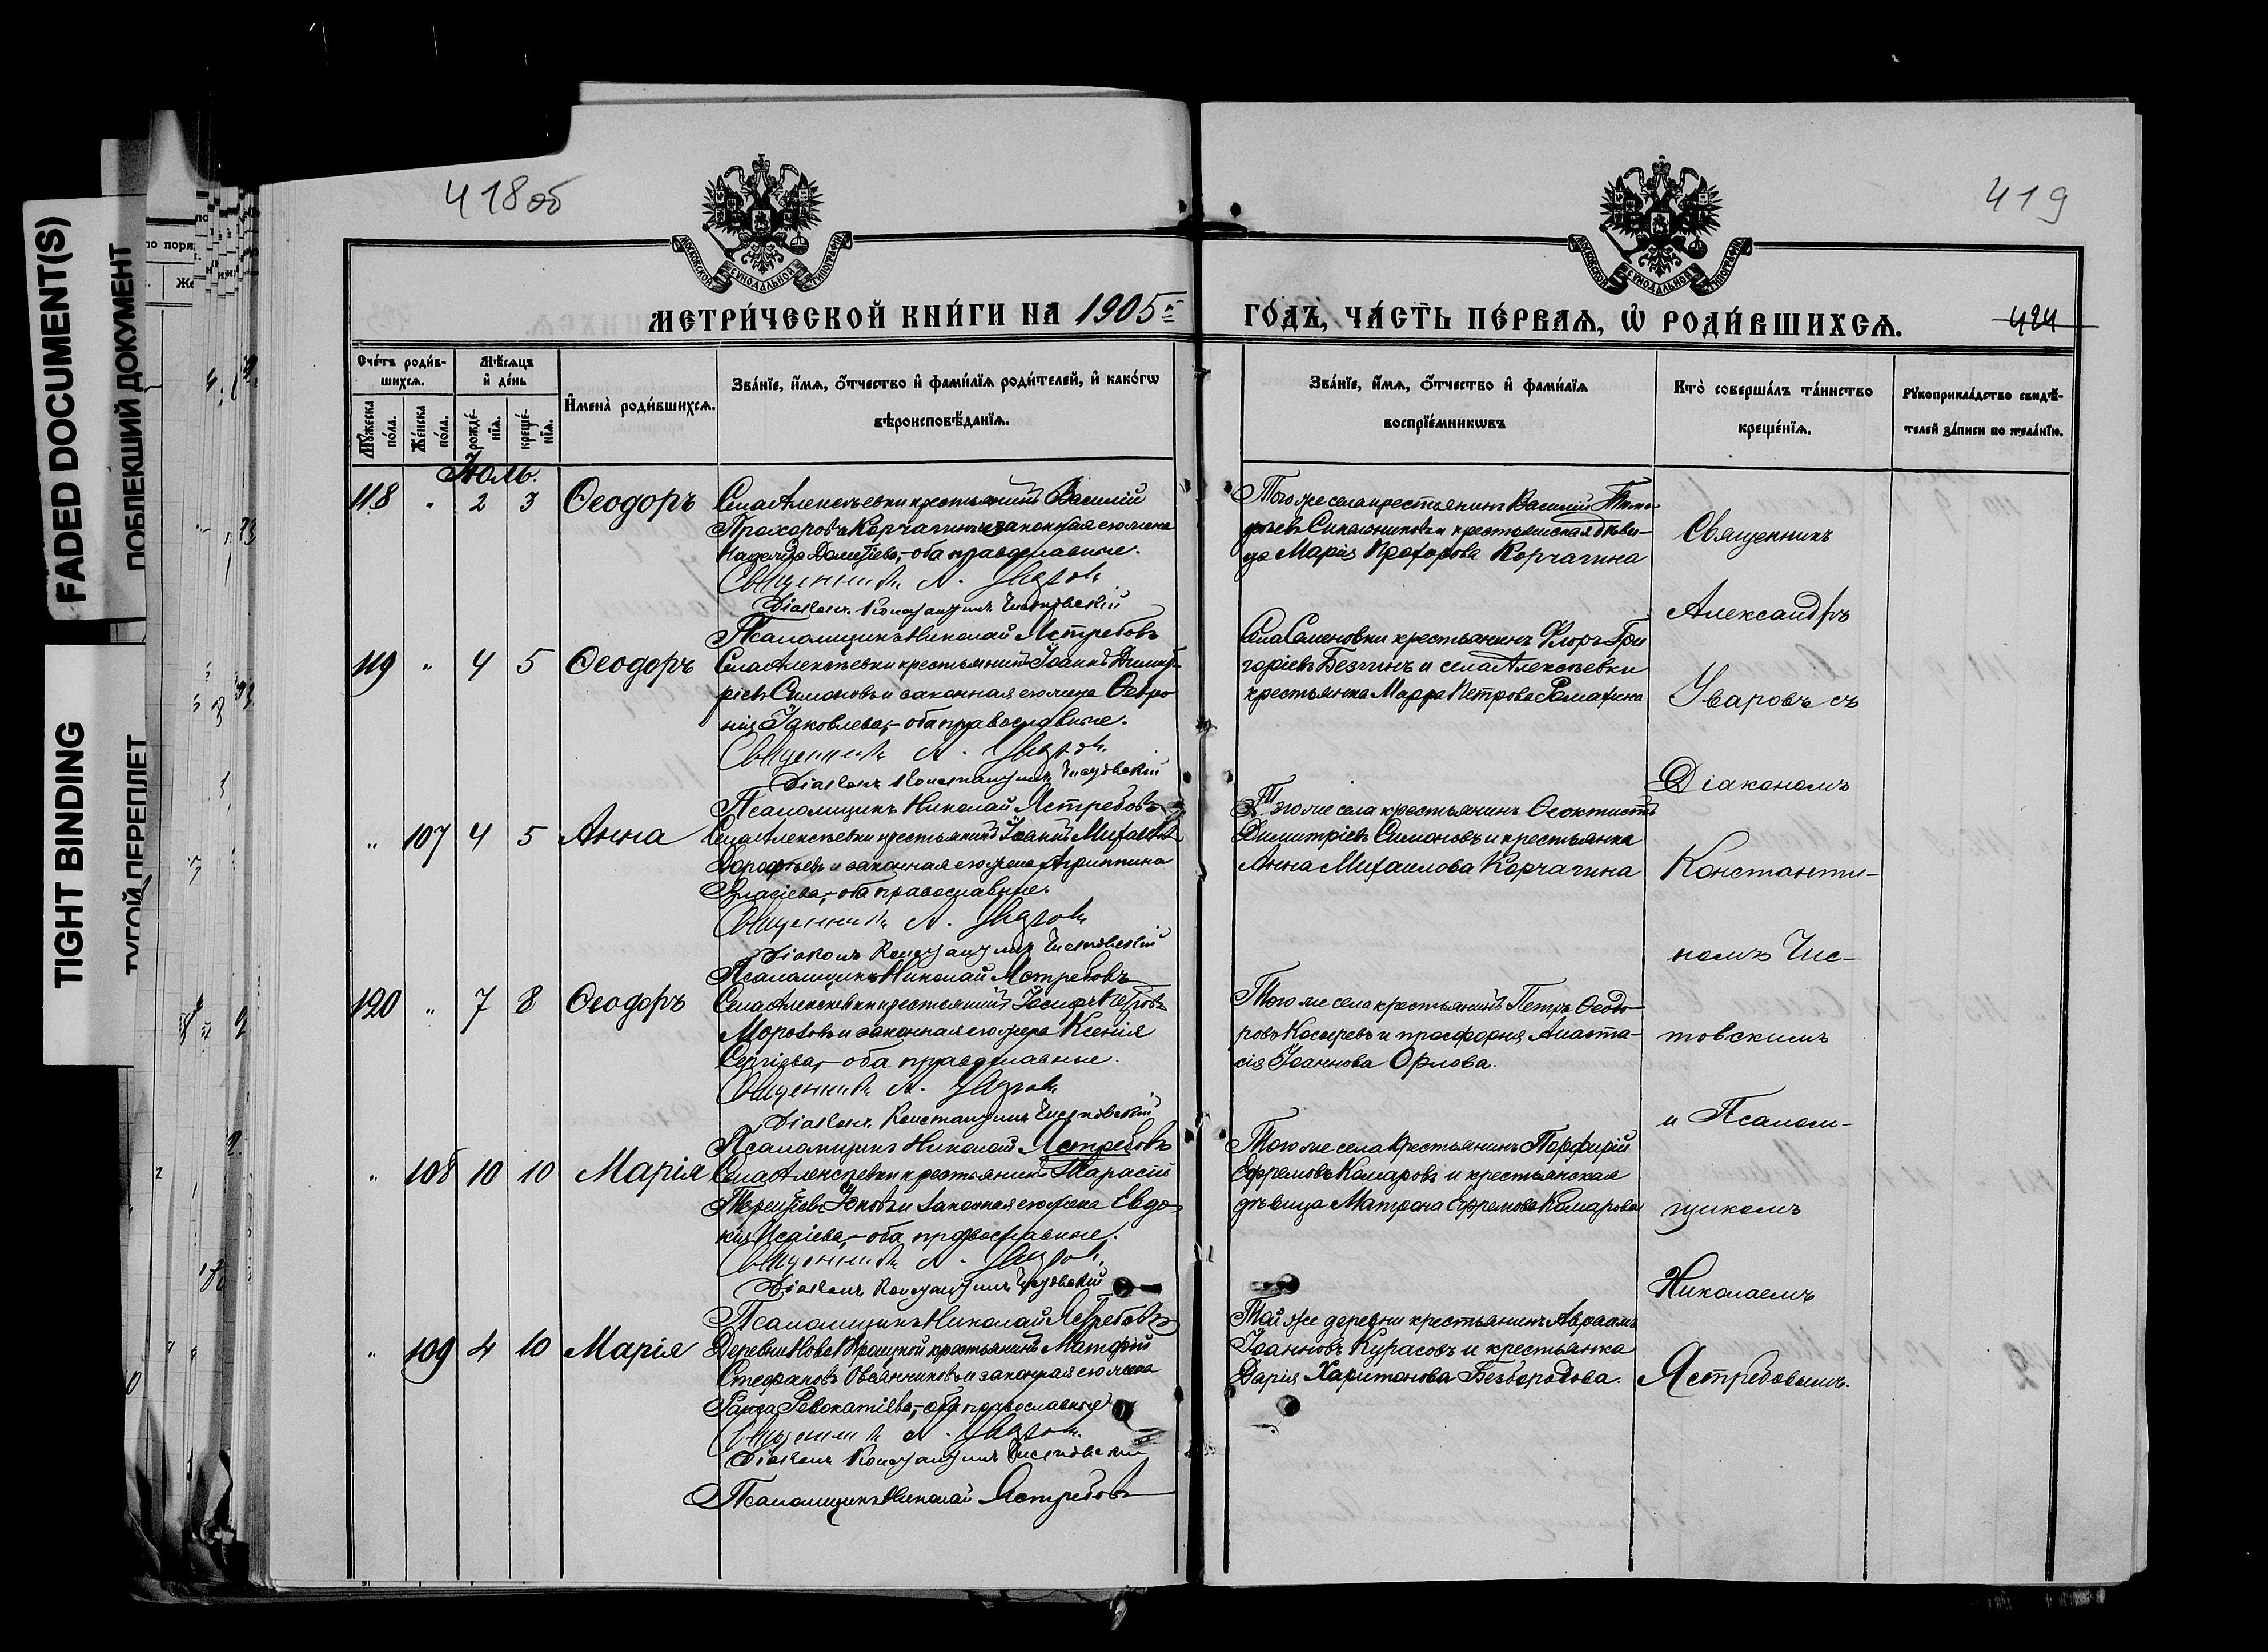 FADED DOCUMENT(S)
ПОБЛЕКШИЙ ДОКУМЕНТ
TIGHT BINDING
ТУГОЙ ПЕРЕПЛЕТ
418об
419
МОСКОВСКОЙ СѴНОДАЛЬНОЙ ТИПОГРАФІИ
МОСКОВСКОЙ СѴНОДАЛЬНОЙ ТИПОГРАФІИ
МЕТРИ́ЧЕСКОЙ КНИ́ГИ НА 1905 г.
ГО́ДЪ, ЧА́СТЬ ПЕ́РВАѦ, Ѡ҆ РОДИ́ВШИХСѦ.
424
Сче́тъ роди́в-
шихсѧ.
Мѣ́сѧцъ
и҆ де́нь
Мꙋ́жеска
по́ла.
Же́нска
по́ла.
рожде́-
нїѧ.
креще́-
нїѧ.
И҆мена̀ роди́вшихсѧ.
Зва́нїе, и҆́мѧ, ѻ҆́тчество и҆ фами́лїѧ роди́телей, и҆ како́гѡ
вѣроисповѣ́данїѧ.
Зва́нїе, и҆́мѧ, ѻ҆́тчество и҆ фами́лїѧ
воспрїе́мникѡвъ
Кто̀ соверша́лъ та́инство
креще́нїѧ.
Рꙋкоприкла́дство свидѣ́-
телей за́писи по жела́нїю.
Іюль.
118 " 2 3 Ѳеодоръ
Села Алексѣевки крестьянинъ Василій
Прохоровъ Корчагинъ и законная его жена
Надежда Дометіева,- оба православные.
Священникъ А. Уваровъ
Діаконъ Константинъ Чистовскій
Псаломщикъ Николай Ястребовъ
Того же села крестьянинъ Василій Тимо-
фѣевъ Синельниковъ и крестьянская дѣви-
ца Марія Прохорова Корчагина
119 " 4 5 Ѳеодоръ
Села Алексѣевки крестьянинъ Іоаннъ Димит-
ріевъ Симоновъ и законная его жена Февро-
нія Іаковлева,- оба православные.
Священникъ А. Уваровъ
Діаконъ Константинъ Чистовскій
Псаломщикъ Николай Ястребовъ
Села Семеновки крестьянинъ Флоръ Гри
горіевъ Безгинъ и села Алексѣевки
крестьянка Марфа Петрова Ромахина
" 107 4 5 Анна
Села Алексѣевки крестьянинъ Іоаннъ Михаевъ
Дорофѣевъ и законная его жена Агриппина
Власіева,- оба православные.
Священникъ А. Уваровъ
Діаконъ Константинъ Чистовскій
Псаломщикъ Николай Ястребовъ
Того же села крестьянинъ Ѳеоктистъ
Димитріевъ Симоновъ и крестьянка
Анна Михаилова Корчагина
120 " 7 8 Ѳеодоръ
Села Алексѣевки крестьянинъ Іосифъ Петровъ
Морозовъ и законная его жена Ксенія
Сергіева,- оба православные.
Священникъ А. Уваровъ
Діаконъ Константинъ Чистовскій
Псаломщикъ Николай Ястребовъ
Того же села крестьянинъ Петръ Ѳеодо-
ровъ Косыревъ и просфорня Анаста-
сія Іоаннова Орлова.
" 108 10 10 Марія
Села Алексѣевки крестьянинъ Тарасій
Терентіевъ и законная его жена Евдо-
кія Исаіева,- оба православные.
Священникъ А. Уваровъ
Діаконъ Константинъ Чистовскій
Псаломщикъ Николай Ястребовъ
Того же села крестьянинъ Порфирій
Ефремовъ Комаровъ и крестьянская
дѣвица Матрона Ефремова Комарова
" 109 4 10 Марія
Деревни Ново крестьянинъ Матфій
Стефановъ Овсянниковъ и законная его жена
Раиса Ревокатіева,- оба православные
Священникъ А. Уваровъ
Діаконъ Константинъ Чистовскій
Псаломщикъ Николай Ястребовъ
Той же деревни крестьянинъ Авраамъ
Іоанновъ Курасовъ и крестьянка
Дарія Харитонова Безбородова.
Священникъ
Александръ
Уваровъ съ
Діакономъ
Константи-
номъ Чис-
товскимъ
и Псалом-
щикомъ
Николаемъ
Ястребовымъ.